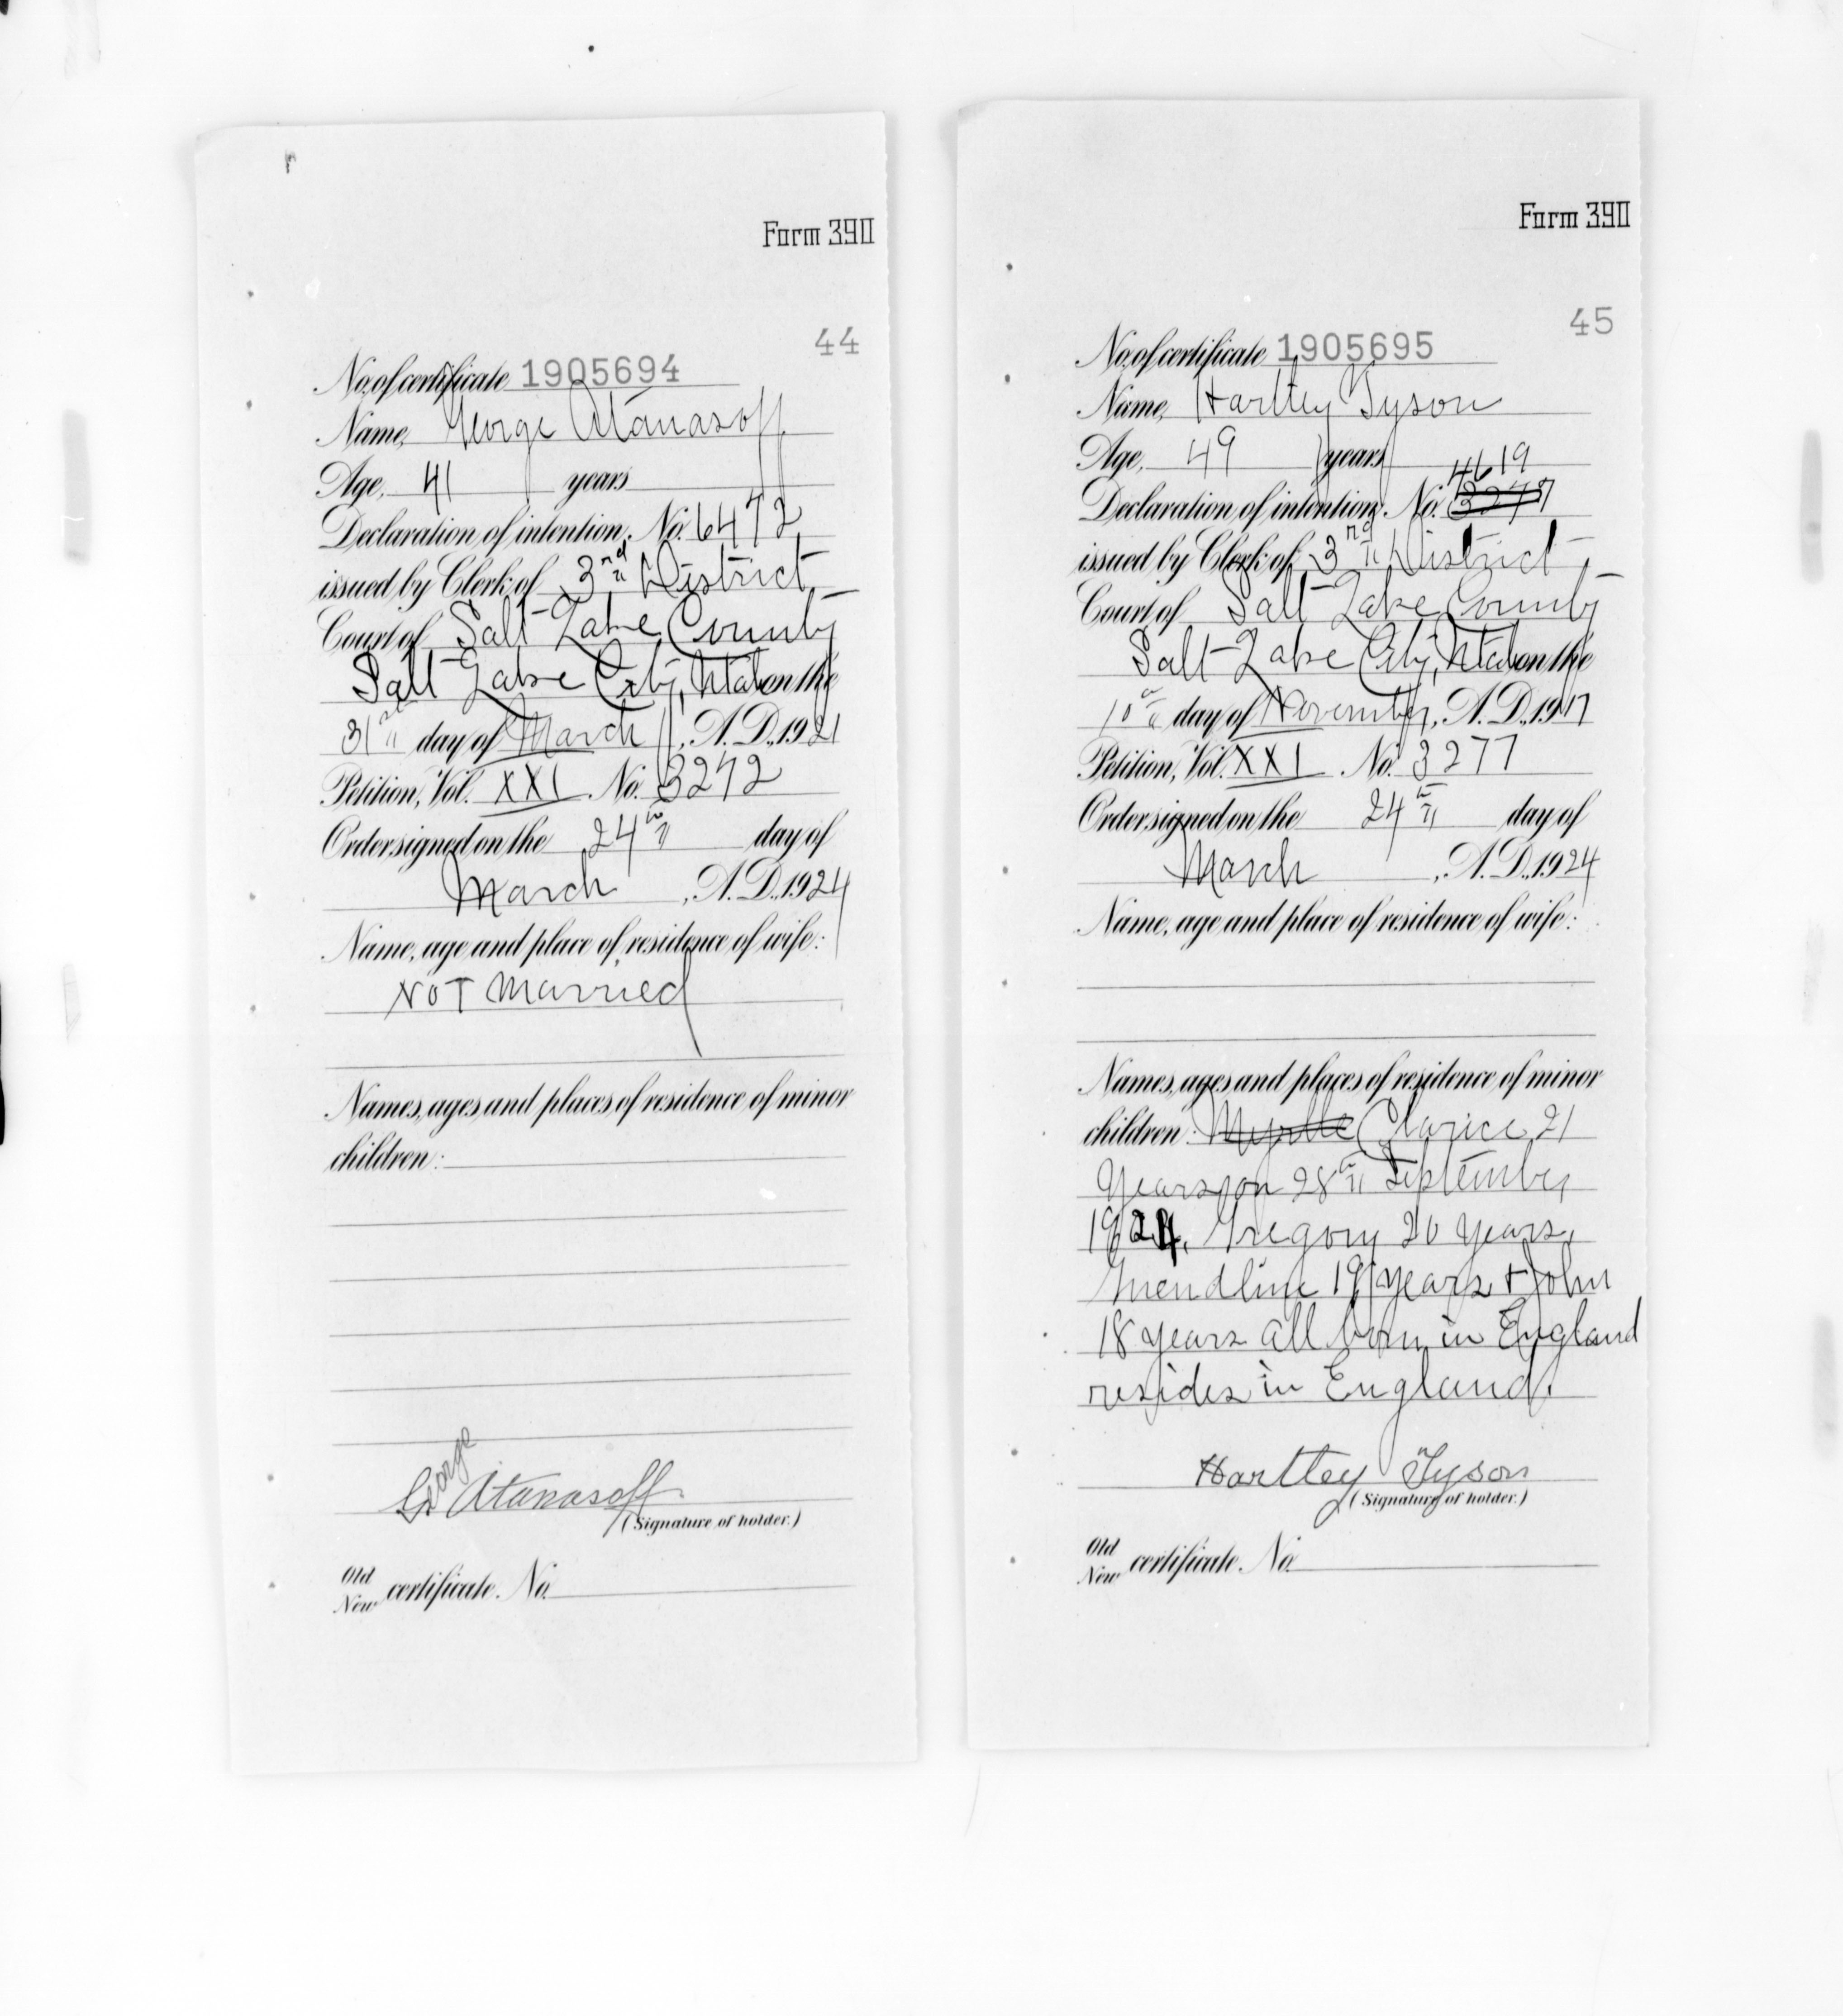 Form 390
44
No. of certificate 1905694
Name, George Atanasoff
Age, 41 years
Declaration of intention, No. 6472
issued by Clerk of 3rd District
Court of Salt Lake County
Salt Lake City, Utah on the
31st day of March, A.D. 1921
Petition, Vol. XXI No. 3272
Order signed on the 24th day of
March, A.D. 1924
Name, age and place of residence of wife:
NOT Married
Names, ages and places of residence of minor
children:
George Atanasoff
(Signature of holder.)
Old
New certificate. No.
Form 390
45
No. of certificate 1905695
Name, Hartley Tyson
Age, 49 years
4619
Declaration of intention, No. 3277
issued by Clerk of 3rd District
Court of Salt Lake County
Salt Lake City, Utah on the
10th day of November, A.D. 1917
Petition, Vol. XXI No. 3277
Order signed on the 24th day of
March, A.D. 1924
Name, age and place of residence of wife:
Names, ages and places of residence of minor
children: Myrtle Clarice 21
years on 28th September
1924, Gregory 20 years,
19 years + John
18 years all born in England
resides in England.
Hartley Tyson
(Signature of holder.)
Old
New certificate. No.